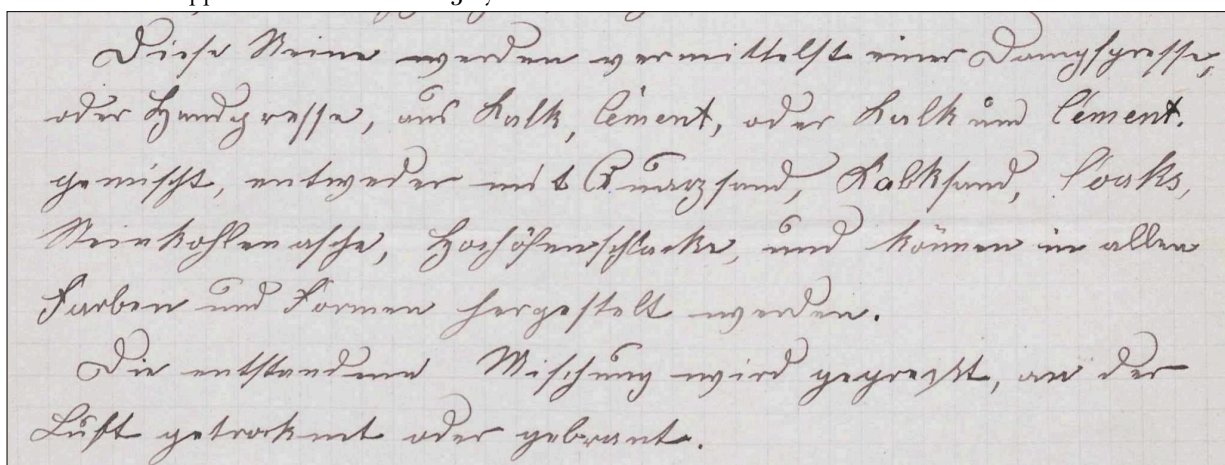 Diese Steine werden vermittelst einer Dampfpresse,
oder Handpresse, aus Kalk, Cement, oder Kalk und Cement.
gemischt, entweder mit Quarzsand, Kalksand, Coaks,
Steinkohlenasche, Hochöfenschlacke, und können in allen
Farben und Formen hergestelt werden.
Die entstandene Mischung wird gepreßt, an der
Luft getroknet oder gebrant.